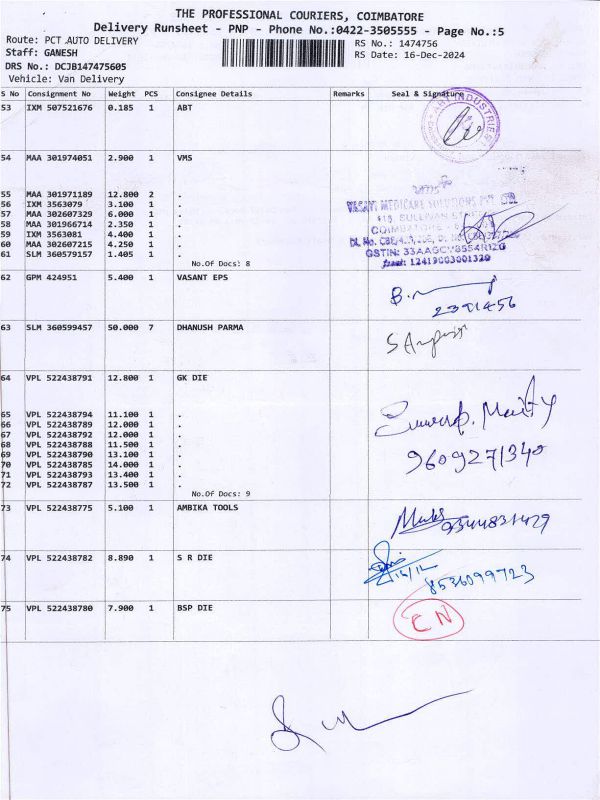 THE PROFESSIONAL COURIERS, COIMBATORE
Delivery Runsheet - PNP - Phone No.:0422-3505555 - Page No.:5
Route: PCT AUTO DELIVERY
Staff: GANESH
DRS No.: DCJB147475605
Vehicle: Van Delivery
RS No.: 1474756
RS Date: 16-Dec-2024
S No Consignment No Weight PCS Consignee Details Remarks Seal & Signature
53 IXM 507521676 0.185 1 ABT
ABT INDUSTRIES
54 MAA 301974051 2.900 1 VMS
55 MAA 301971189 12.800 2 .
56 IXM 3563079 3.100 1 .
57 MAA 302607329 6.000 1 .
58 MAA 301966714 2.350 1 .
59 IXM 3563081 4.400 1 .
60 MAA 302607215 4.250 1 .
61 SLM 360579157 1.405 1 .
No.Of Docs: 8
VASANT MEDICARE SOLUTIONS PVT LTD
COIMBATORE
GSTIN: 33AAGCV8554R1ZG
12419003001320
62 GPM 424951 5.400 1 VASANT EPS
2391456
63 SLM 360599457 50.000 7 DHANUSH PARMA
64 VPL 522438791 12.800 1 GK DIE
65 VPL 522438794 11.100 1 .
66 VPL 522438789 12.000 1 .
67 VPL 522438792 12.000 1 .
68 VPL 522438788 11.500 1 .
69 VPL 522438790 13.100 1 .
70 VPL 522438785 14.000 1 .
71 VPL 522438793 13.400 1 .
72 VPL 522438787 13.500 1 .
No.Of Docs: 9
9609271340
73 VPL 522438775 5.100 1 AMBIKA TOOLS
9344831429
74 VPL 522438782 8.890 1 S R DIE
8536099723
75 VPL 522438780 7.900 1 BSP DIE
CN